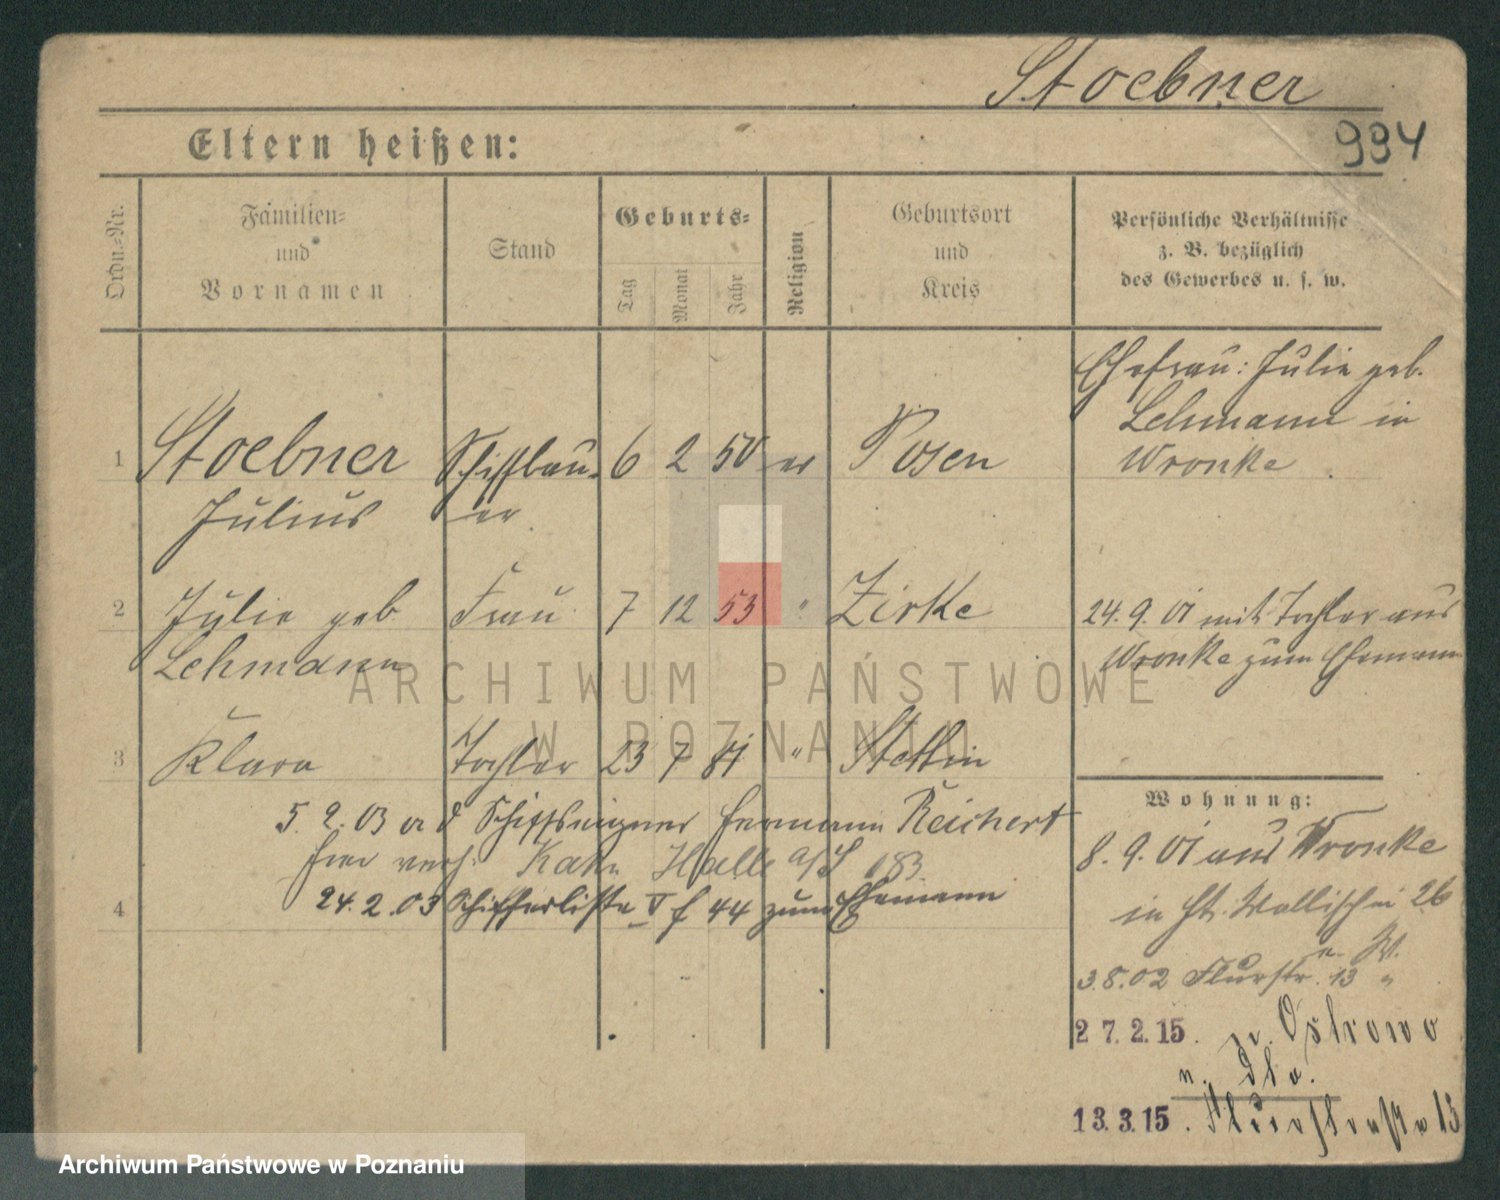 Stoebner
994
Eltern heißen:
Ordn.=Nr.
Familien=
und
Vornamen
Stand
Geburts=
Tag
Monat
Jahr
Religion
Geburtsort
und
Kreis
Persönliche Verhältnisse
z. B. bezüglich
des Gewerbes u. s. w.
Ehefrau: Julie geb.
Lehmann in
Wronke
1 Stoebner Schiffbau- 6 2 50 ev Posen
Julius er
2 Julie geb Frau 7 12 53 " Zirke
Lehmann
24.9.01 mit Tochter aus
Wronke zum Ehemann
3 Klara Tochter 23 7 81 " Stettin
5. 2. 03 Schiffseigner Hermann Reichert
Kahn Halle a/S 183
4 24.2.03 Schifferliste V f 44 zum Ehemann
Wohnung:
8.9.01 aus Wronke
in Wallischei 26
3.8.02 Flurstr. 13 "
27.2.15. Ostrowo
13.3.15. Flurstraße 13
ARCHIWUM PAŃSTWOWE
W POZNANIU
Archiwum Państwowe w Poznaniu